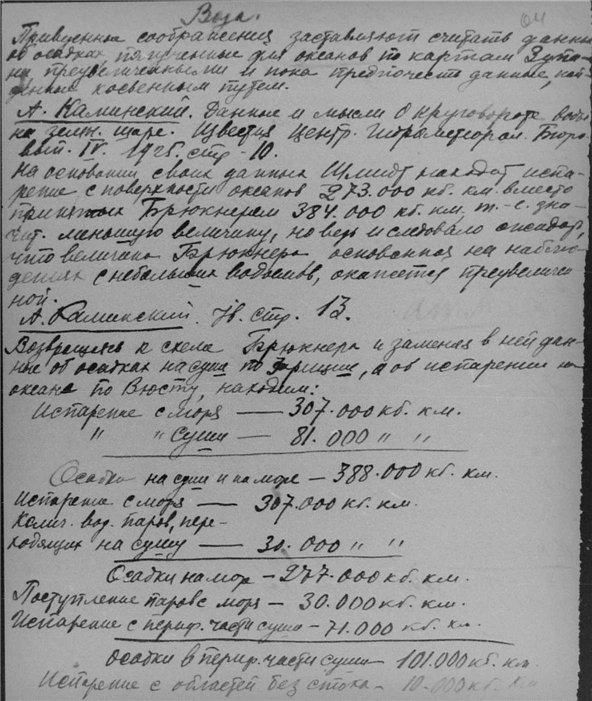 Вода.
Приведенные соображения заставляют считать данные
об осадках, полученные для океанов по картам Зупа-
на преувеличенными и пока предпочесть данные, най-
денные косвенным путем.
А. Каминский. Данные и мысли о круговороте воды
на земн. шаре. Известия Центр. Гидрометеорол. Бюро
вып. IV. 1925. стр. 10.
На основании своих данных Шмидт находит испа-
рение с поверхности океанов 273.000 кб. км. вместо
принятых Брюкнером 384.000 кб. км, т.-е. зна-
чит. меньшую величину, но ведь и следовало ожидать,
что величина Брюкнера, основанная на наблю-
дениях с небольших водоемов, окажется преувеличен
ной.
А. Каминский. Ib. стр. 13.
Возвращаясь к схеме Брюкнера и заменяя в ней дан-
ные об осадках на суше по Фрицше, а об испарении на
океане по Вюсту, находим:
Испарение с моря — 307.000 кб. км.
" " суши — 81.000 " "
Осадки на суше и на море — 388.000 кб. км.
Испарение с моря — 307.000 кб. км.
Колич. вод. паров, пере-
ходящих на сушу — 30.000 " "
Осадки на море — 277.000 кб. км.
Поступление паров с моря — 30.000 кб. км.
Испарение с периф. части суши — 71.000 кб. км.
осадки в периф. части суши — 101.000 кб. км.
Испарение с областей без стока — 10.000 кб. км